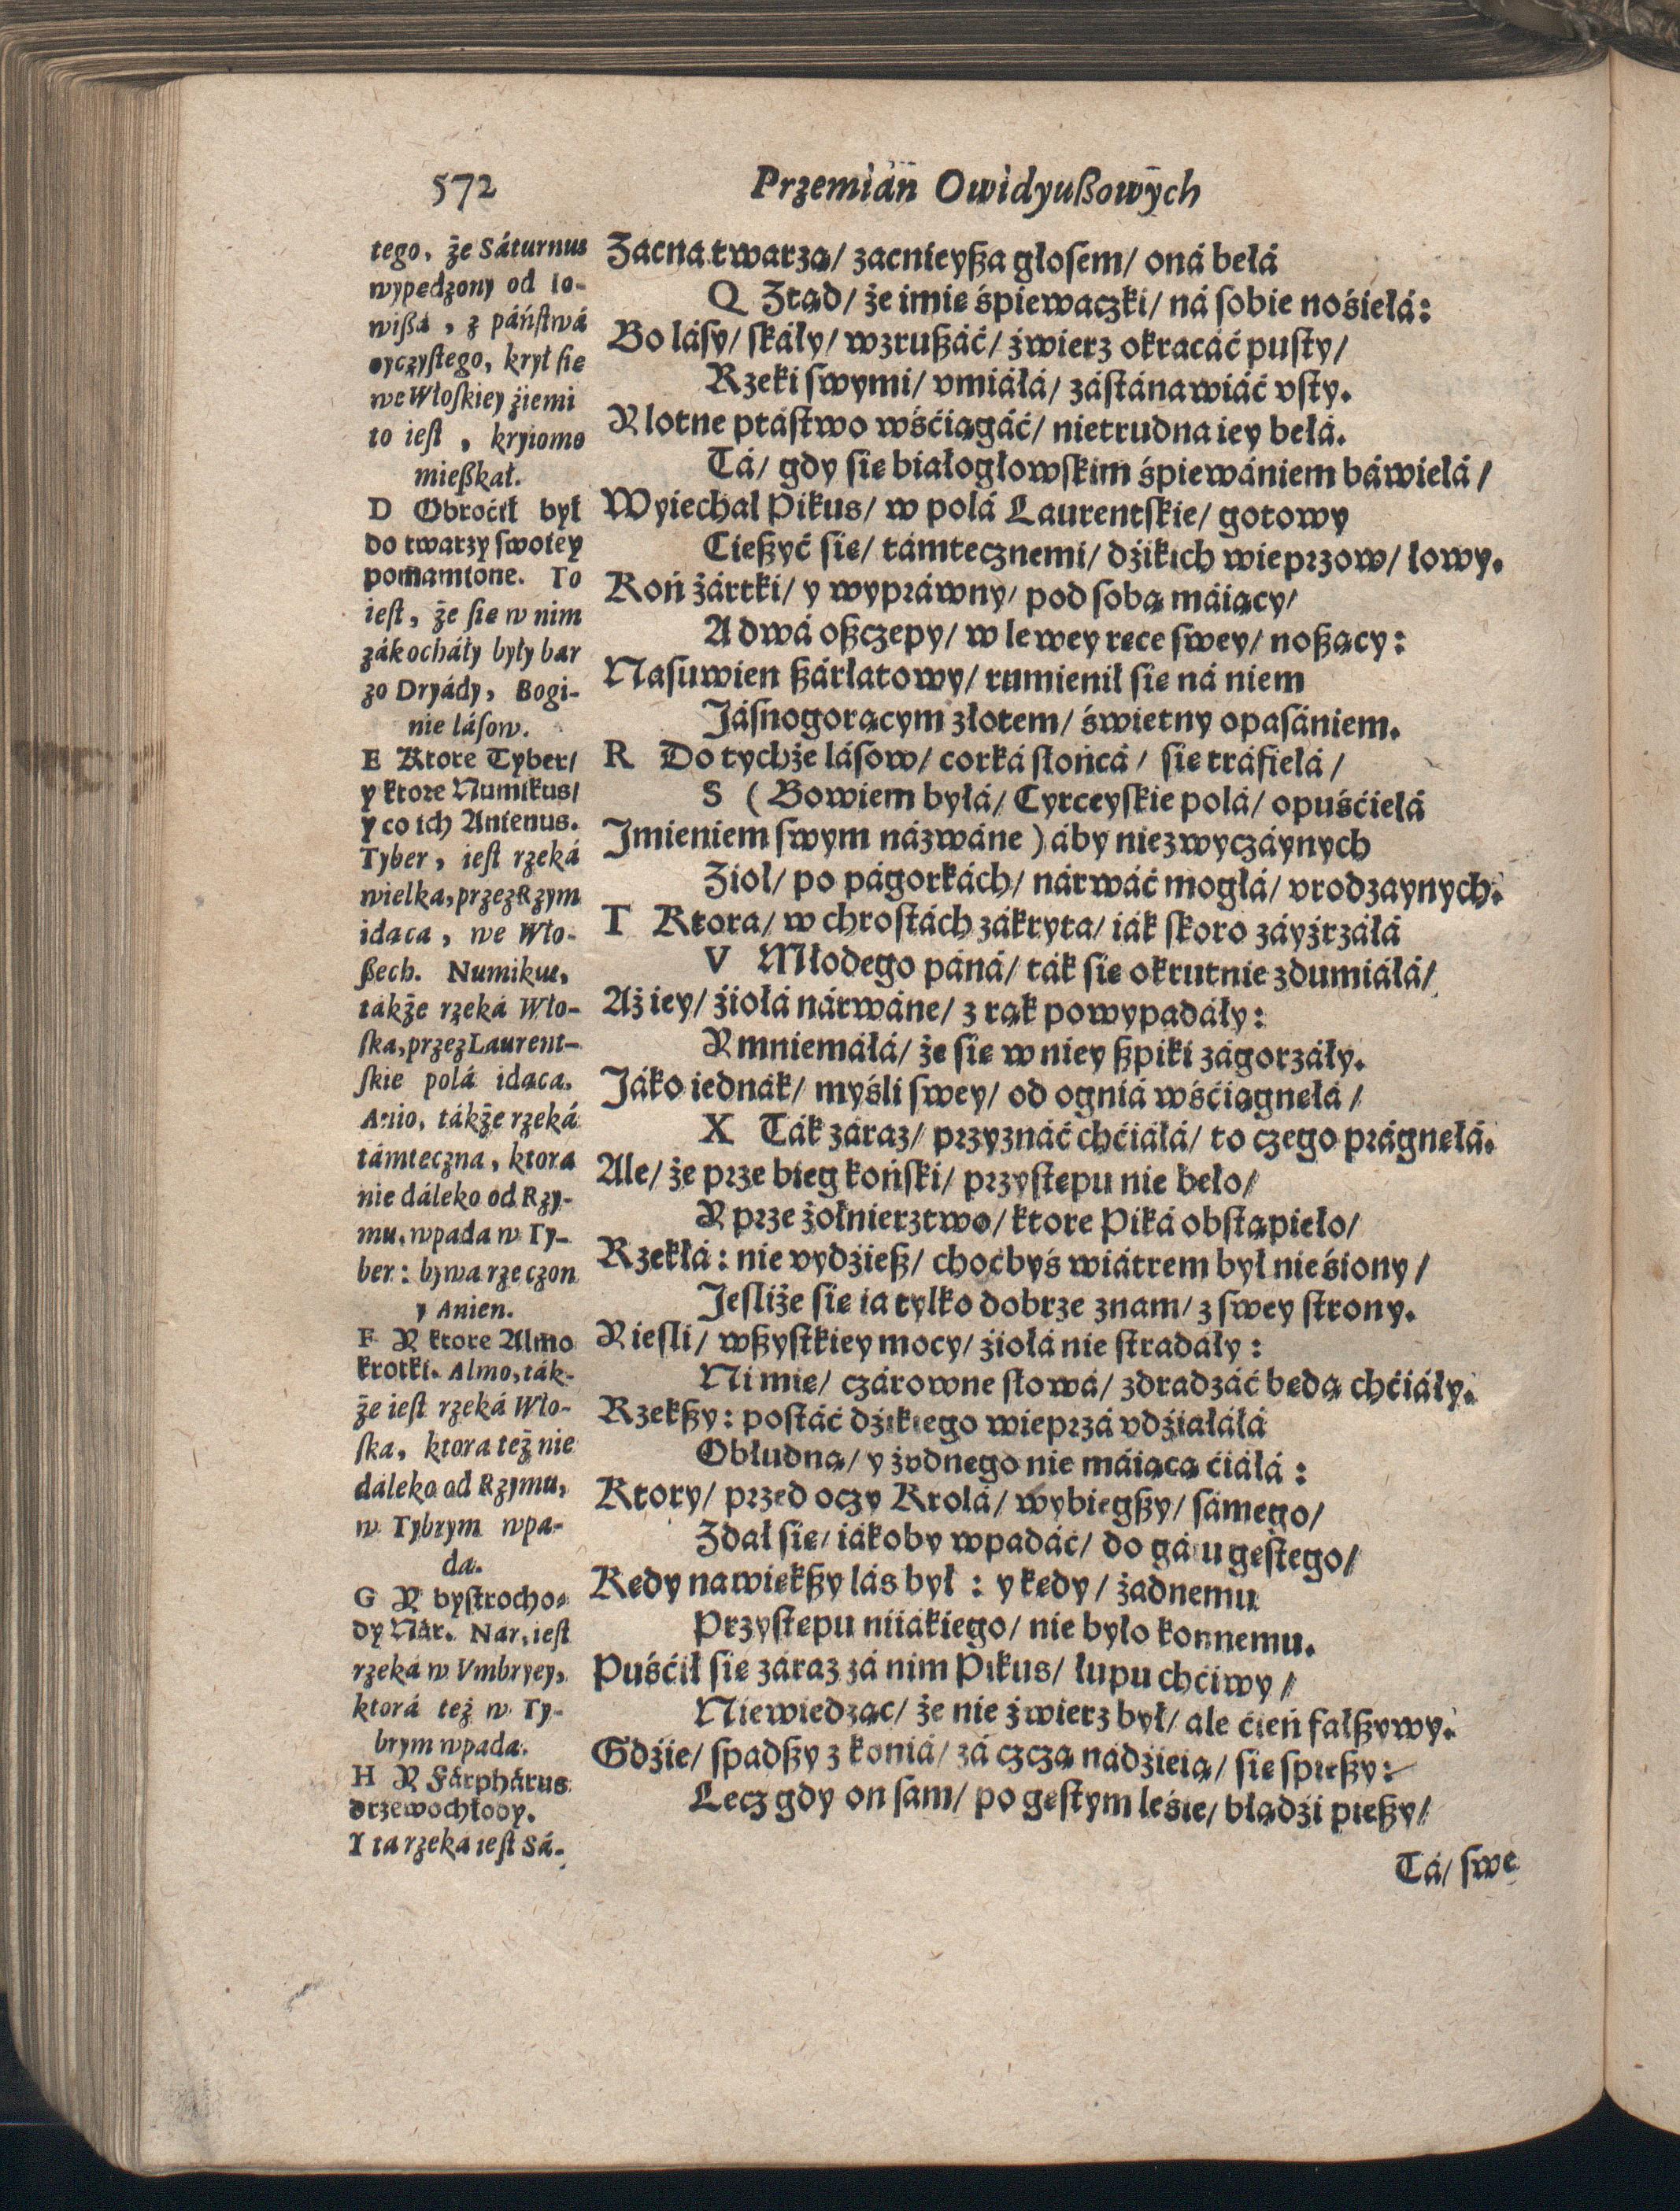 572
Przemián Owidyußowych
tego, że Sáturnus
wypędzony od Io-
wißá, z páńſtwá
oyczyſtego, krył ſie
we Włoſkiey źiemi
to ieſt, kryiomo
mießkał.
D Obroćił był
do twarzy ſwoiey
pomamione. To
ieſt, że ſie w nim
zákocháły były bar
zo Dryády, Bogi-
nie láſow.
E Ktore Tyber/
y ktore Numikus/
y co ich Anienus.
Tyber, ieſt rzeká
wielka, przez Rzym
idąca, we Wło-
ßech. Numikus,
tákże rzeká Wło-
ſka, przez Laurent-
ſkie polá idąca.
Anio, tákże rzeká
támteczna, ktora
nie dáleko od Rzy-
mu, wpada w Ty-
ber: bywa rzeczon
y Anien.
F Y ktore Almo
krotki. Almo, ták-
że ieſt rzeká Wło-
ſka, ktora też nie
dáleko od Rzymu,
w Tybrym wpa-
da.
G Y byſtrocho-
dy Nár. Nar, ieſt
rzeká w Vmbryey,
ktorá też w Ty-
brym wpada.
H Y Fárphárus
drzewochłody.
Y ta rzeka ieſt Sá-
Zacna twarzą/ zacnieyßa głoſem/ oná belá
Q Ztąd/ że imię śpiewaczki/ ná ſobie nośiełá:
Bo láſy/ ſkáły/ wzrußáć/ źwierz okracáć puſty/
Rzeki ſwymi/ vmiáłá/ záſtánawiáć vſty.
Y lotne ptáſtwo wśćiągáć/ nietrudna iey belá.
Tá/ gdy ſie białogłowſkim śpiewániem báwielá/
Wyiechał Pikus/ w polá Laurentſkie/ gotowy
Cießyć ſie/ támtecznemi/ dźikich wieprzow/ łowy.
Koń żártki/ y wypráwny/ pod ſobą máiący/
A dwá oßczepy/ w lewey ręce ſwey/ noßący:
Naſuwien ßárłatowy/ rumienił ſie ná niem
Jáſnogorącym złotem/ świetny opaſániem.
R Do tychże láſow/ corká słońcá/ ſie tráfielá/
S (Bowiem byłá/ Cyrceyſkie polá/ opuśćielá
Jmieniem ſwym názwáne) áby niezwyczáynych
Zioł/ po págorkách/ nárwáć mogłá/ vrodzaynych.
T Ktora/ w chroſtách zákryta/ iák ſkoro záyźrzáłá
V Młodego páná/ ták ſie okrutnie zdumiáłá/
Aż iey/ źiołá nárwáne/ z rąk powypadáły:
Y mniemáłá/ że ſie w niey ßpiki zágorzáły.
Jáko iednák/ myśli ſwey/ od ogniá wśćiągnełá/
X Ták záraz/ przyznáć chćiáłá/ to czego prágnełá.
Ale/ że prze bieg końſki/ przyſtępu nie beło/
Y prze żołnierztwo/ ktore Piká obſtąpieło/
Rzekłá: nie vydźieß/ choćbyś wiátrem był nieśiony/
Jeſliże ſie ia tylko dobrze znam/ z ſwey ſtrony.
Y ieſli/ wßyſtkiey mocy/ źiołá nie ſtradáły:
Ni mię/ czárowne słowá/ zdradzáć będą chćiáły.
Rzekßy: poſtáć dźikiego wieprzá vdźiáłáłá
Obłudną/ y żodnego nie máiącą ćiáłá:
Ktory/ przed oczy Krolá/ wybiegßy/ ſámego/
Zdał ſie/ iákoby wpadáć/ do gáiu gęſtego/
Kędy nawiękßy lás był: y kędy/ żadnemu
Przyſtępu niiákiego/ nie było konnemu.
Puśćił ſie záraz zá nim Pikus/ łupu chćiwy/
Niewiedząc/ że nie źwierz był/ ale ćień fałßywy.
Gdźie/ ſpadßy z koniá/ zá czczą nádźieią/ ſie ſpießy:
Lecz gdy on ſam/ po gęſtym leśie/ błądźi pießy/
Tá/ ſwe